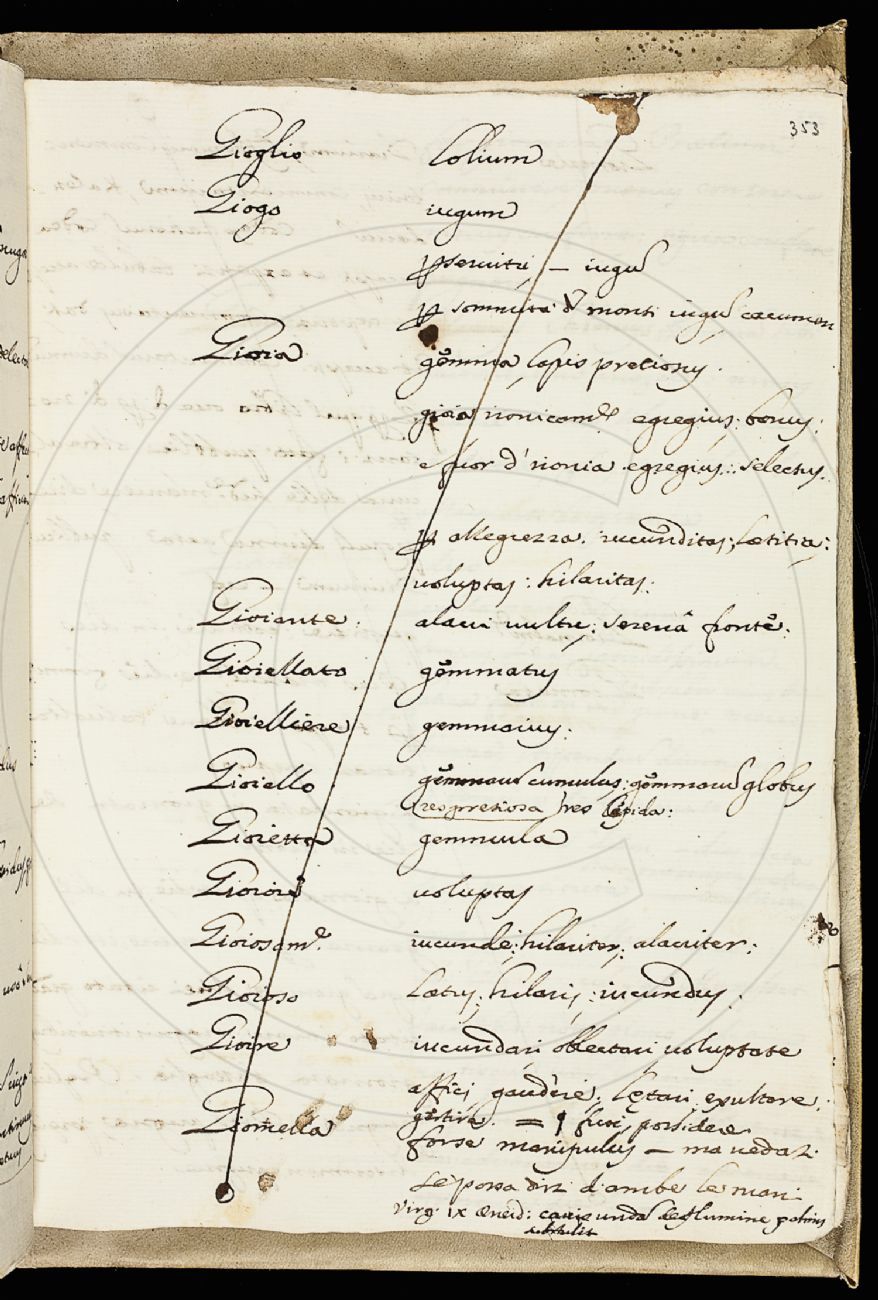 353
Gioglio lolium
Giogo iugum
p servitù, — iugū
p sommità d monti iugū cacumen
Gioia gemma lapis pretiosus.
gioia ironicamte egregius; bonus:
e fuor d'ironia egregius: selectus.
p allegrezza. iucunditas; lætitia:
voluptas: hilaritas:
Gioiante: alacri vultu; serenâ fronte:
Gioiellato gemmatus
Gioielliere gemmarius:
Gioiello gemmarū cumulus; gemmarū globus
res pretiosa res lepida:
Gioietta gemmula
Gioire voluptas
Gioiosamte. iucundè; hilariter; alacriter:
Gioioso lætus; hilaris; iucundus:
Gioire iucundari oblectari voluptate
affici gaudere; lętari exultare:
gestire. = frui, possidere
Giomella forse manipulus — ma vedaz.
se possa dirz d'ambe le mani
Virg. IX Æneid: undā de flumine palmis
sustulit